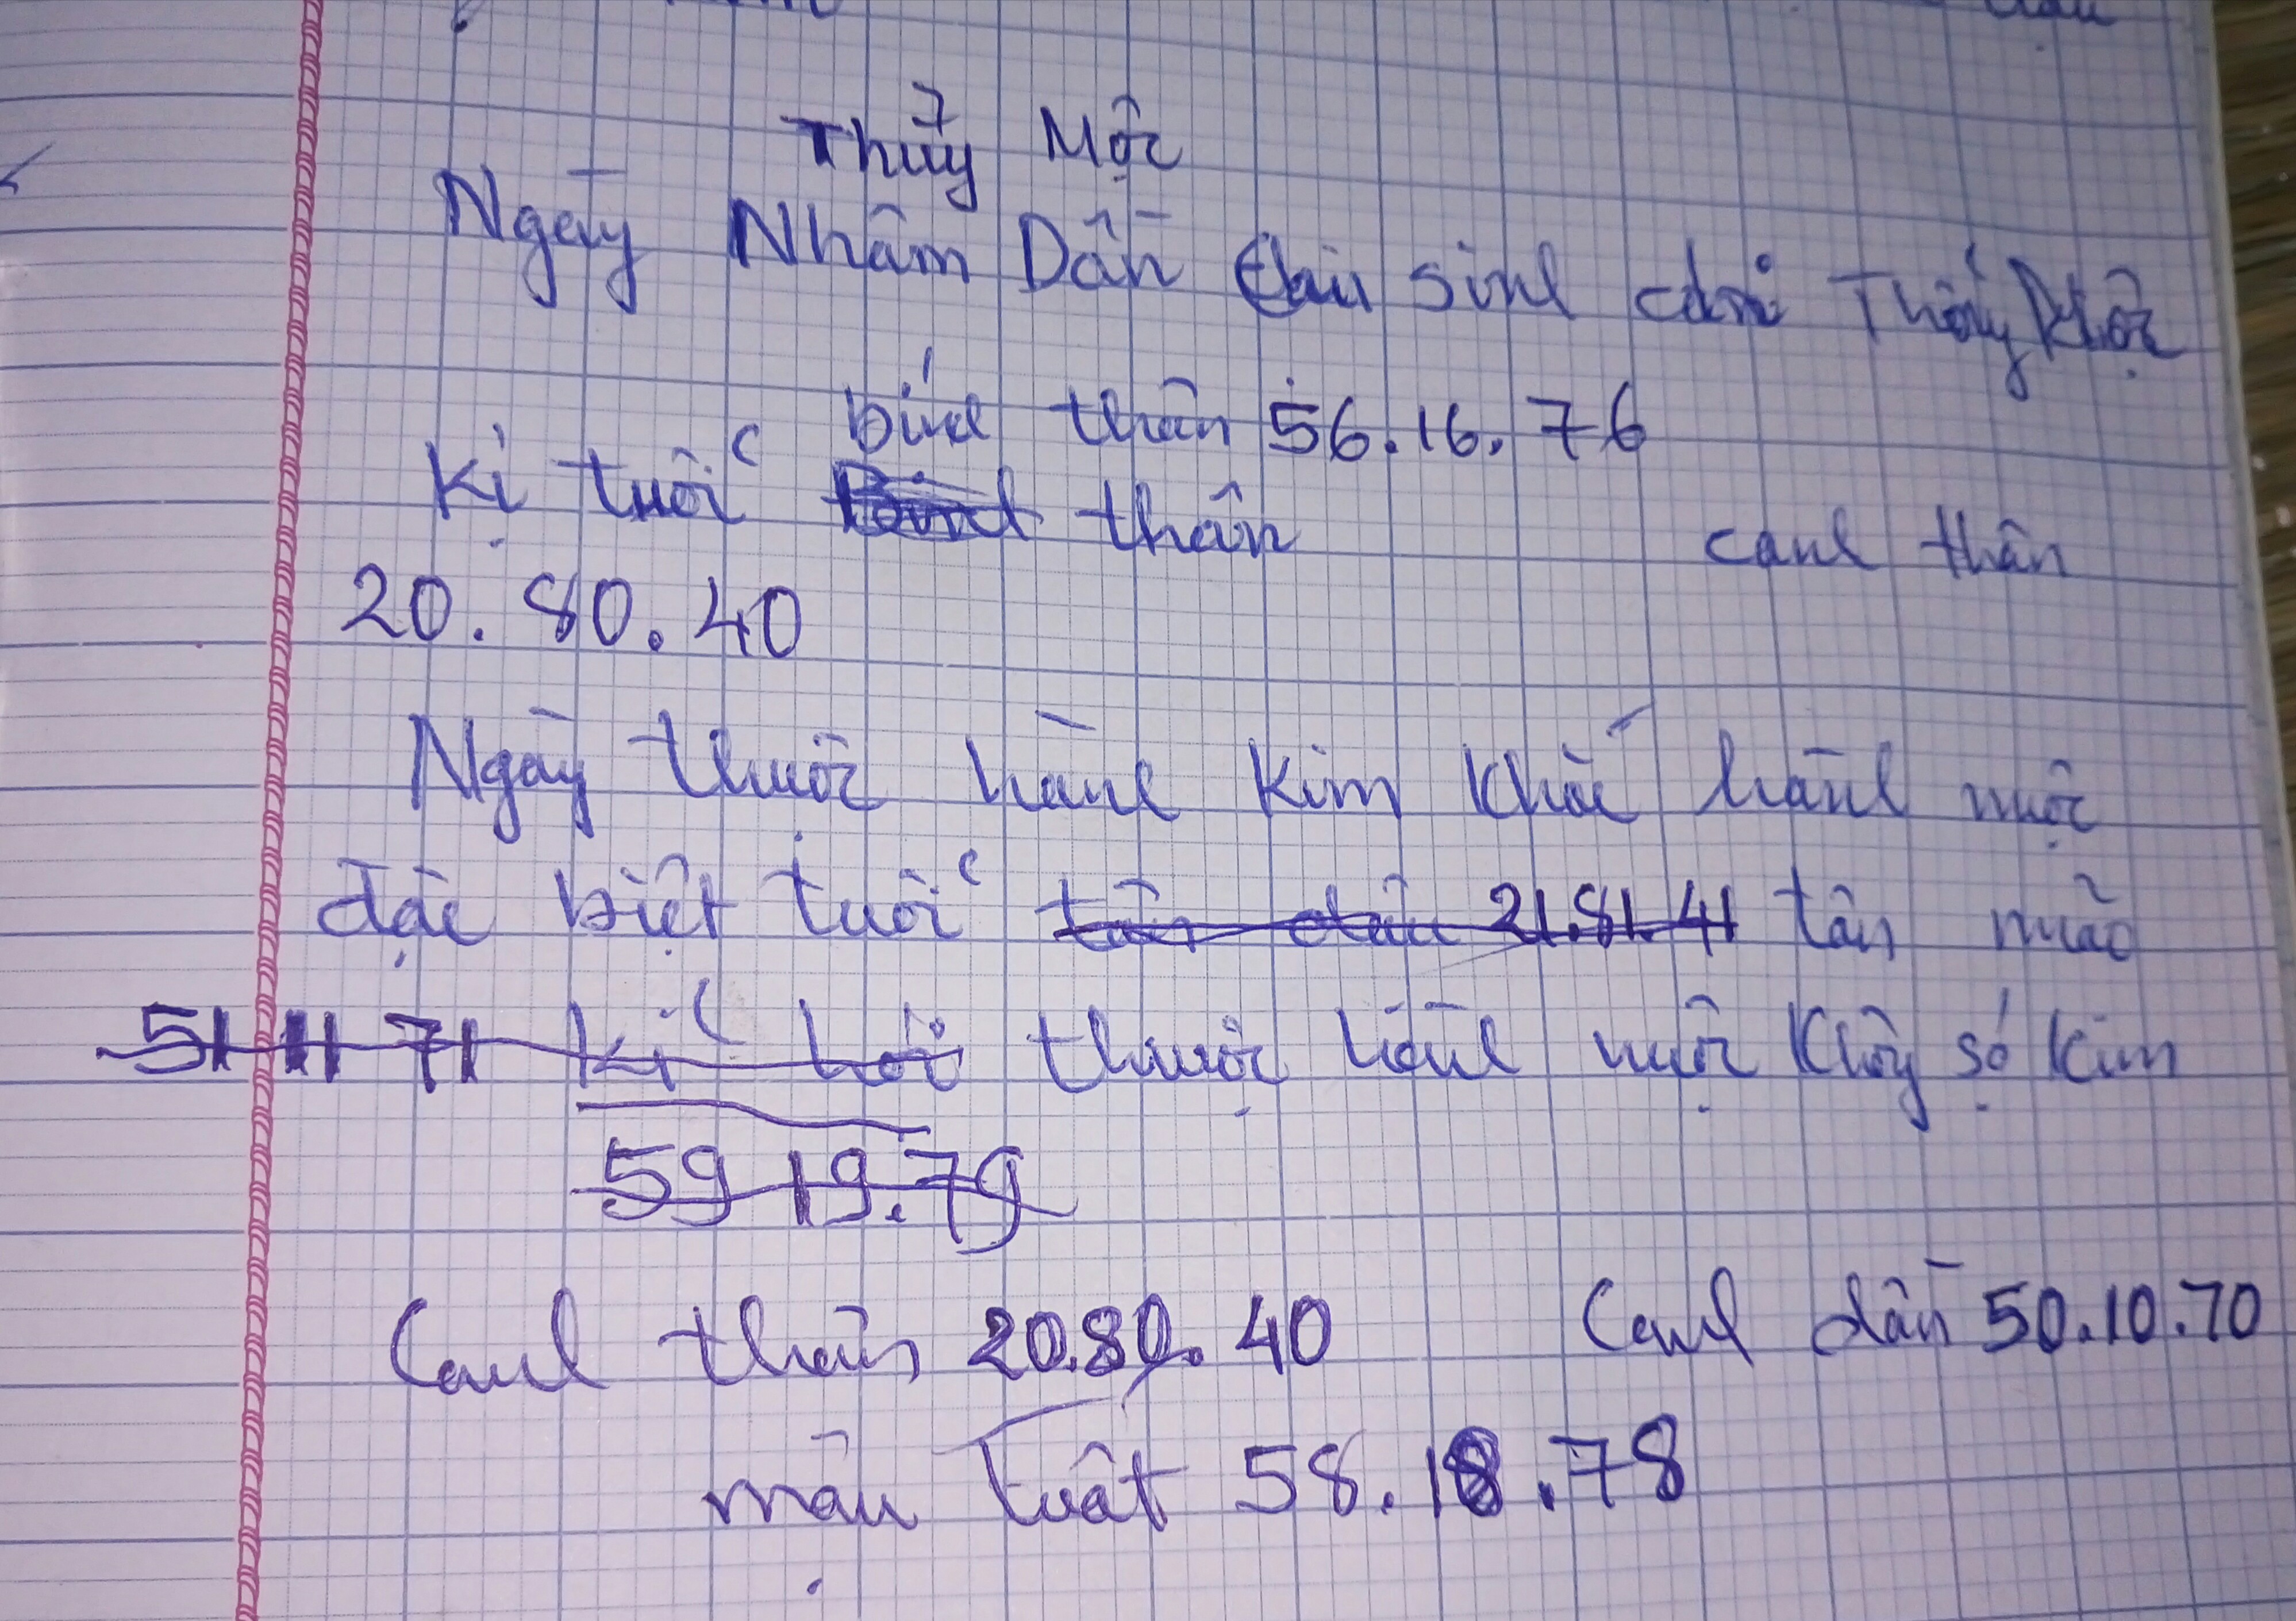 Thủy Mộc
Ngày Nhâm Dần Can sinh chi Thủy Mộc
bính thân 56.16.76
Kị tuổi thân canh thân
20.80.40
Ngày thuộc hành Kim khắc hành mộc
đặc biệt tuổi tân dậu 21.81.41 tân mão
51 11 71 kỉ hợi thuộc hành mộc không sợ Kim
59 19.79
Canh thân 20.80.40 Canh dần 50.10.70
mậu tuất 58.18.78